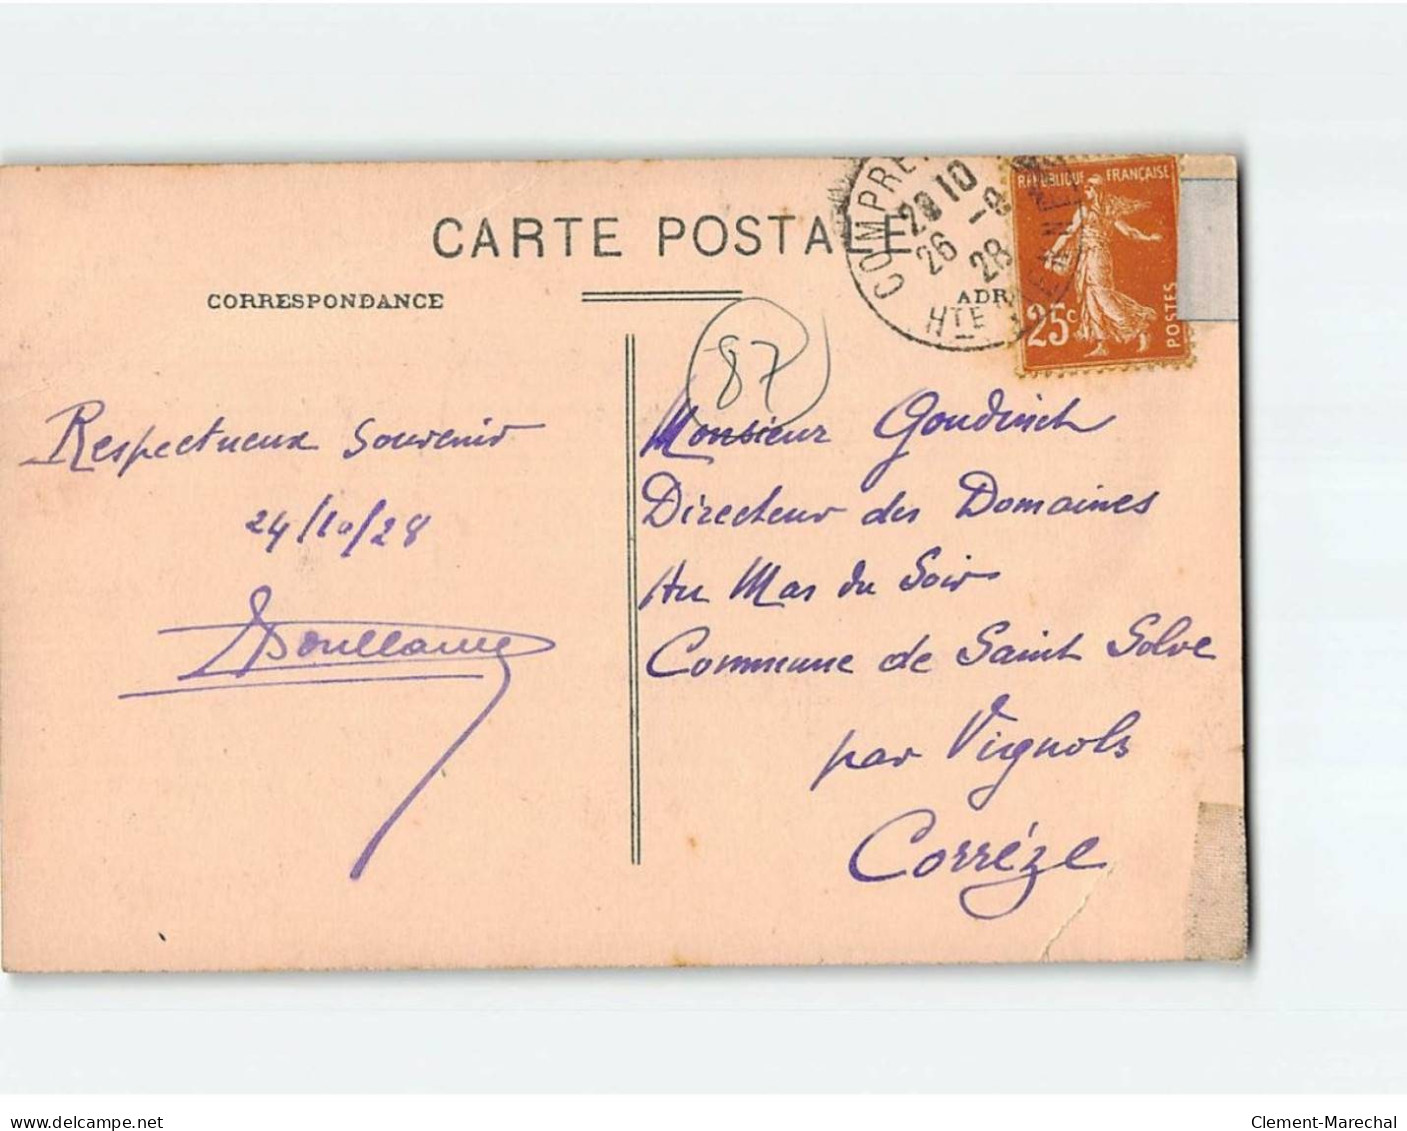 CARTE POSTALE
CORRESPONDANCE
ADR
RÉPUBLIQUE FRANÇAISE
25c
POSTES
COMPRE
26 -8
28
HTE VIENNE
87
Respectueux Souvenir
24/10/28
Monsieur Goudinch
Directeur des Domaines
Au Mas du Soir
Commune de Saint Solve
par Vignols
Corrèze
delcampe.net
Clement-Marechal